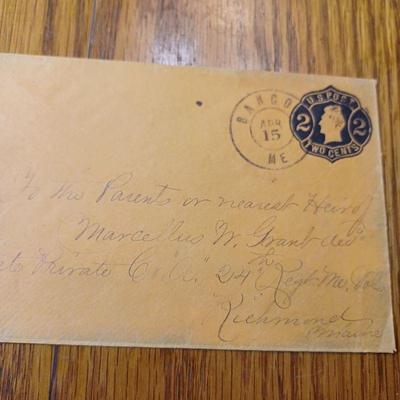 BANGO
APR
15
ME
U.S. POST
2 2
TWO CENTS
To the Parents or nearest Heir of
Marcellus W. Grant dec'd
late Private Co. "A." 24th Regt. Me. Vols
Richmond
Maine